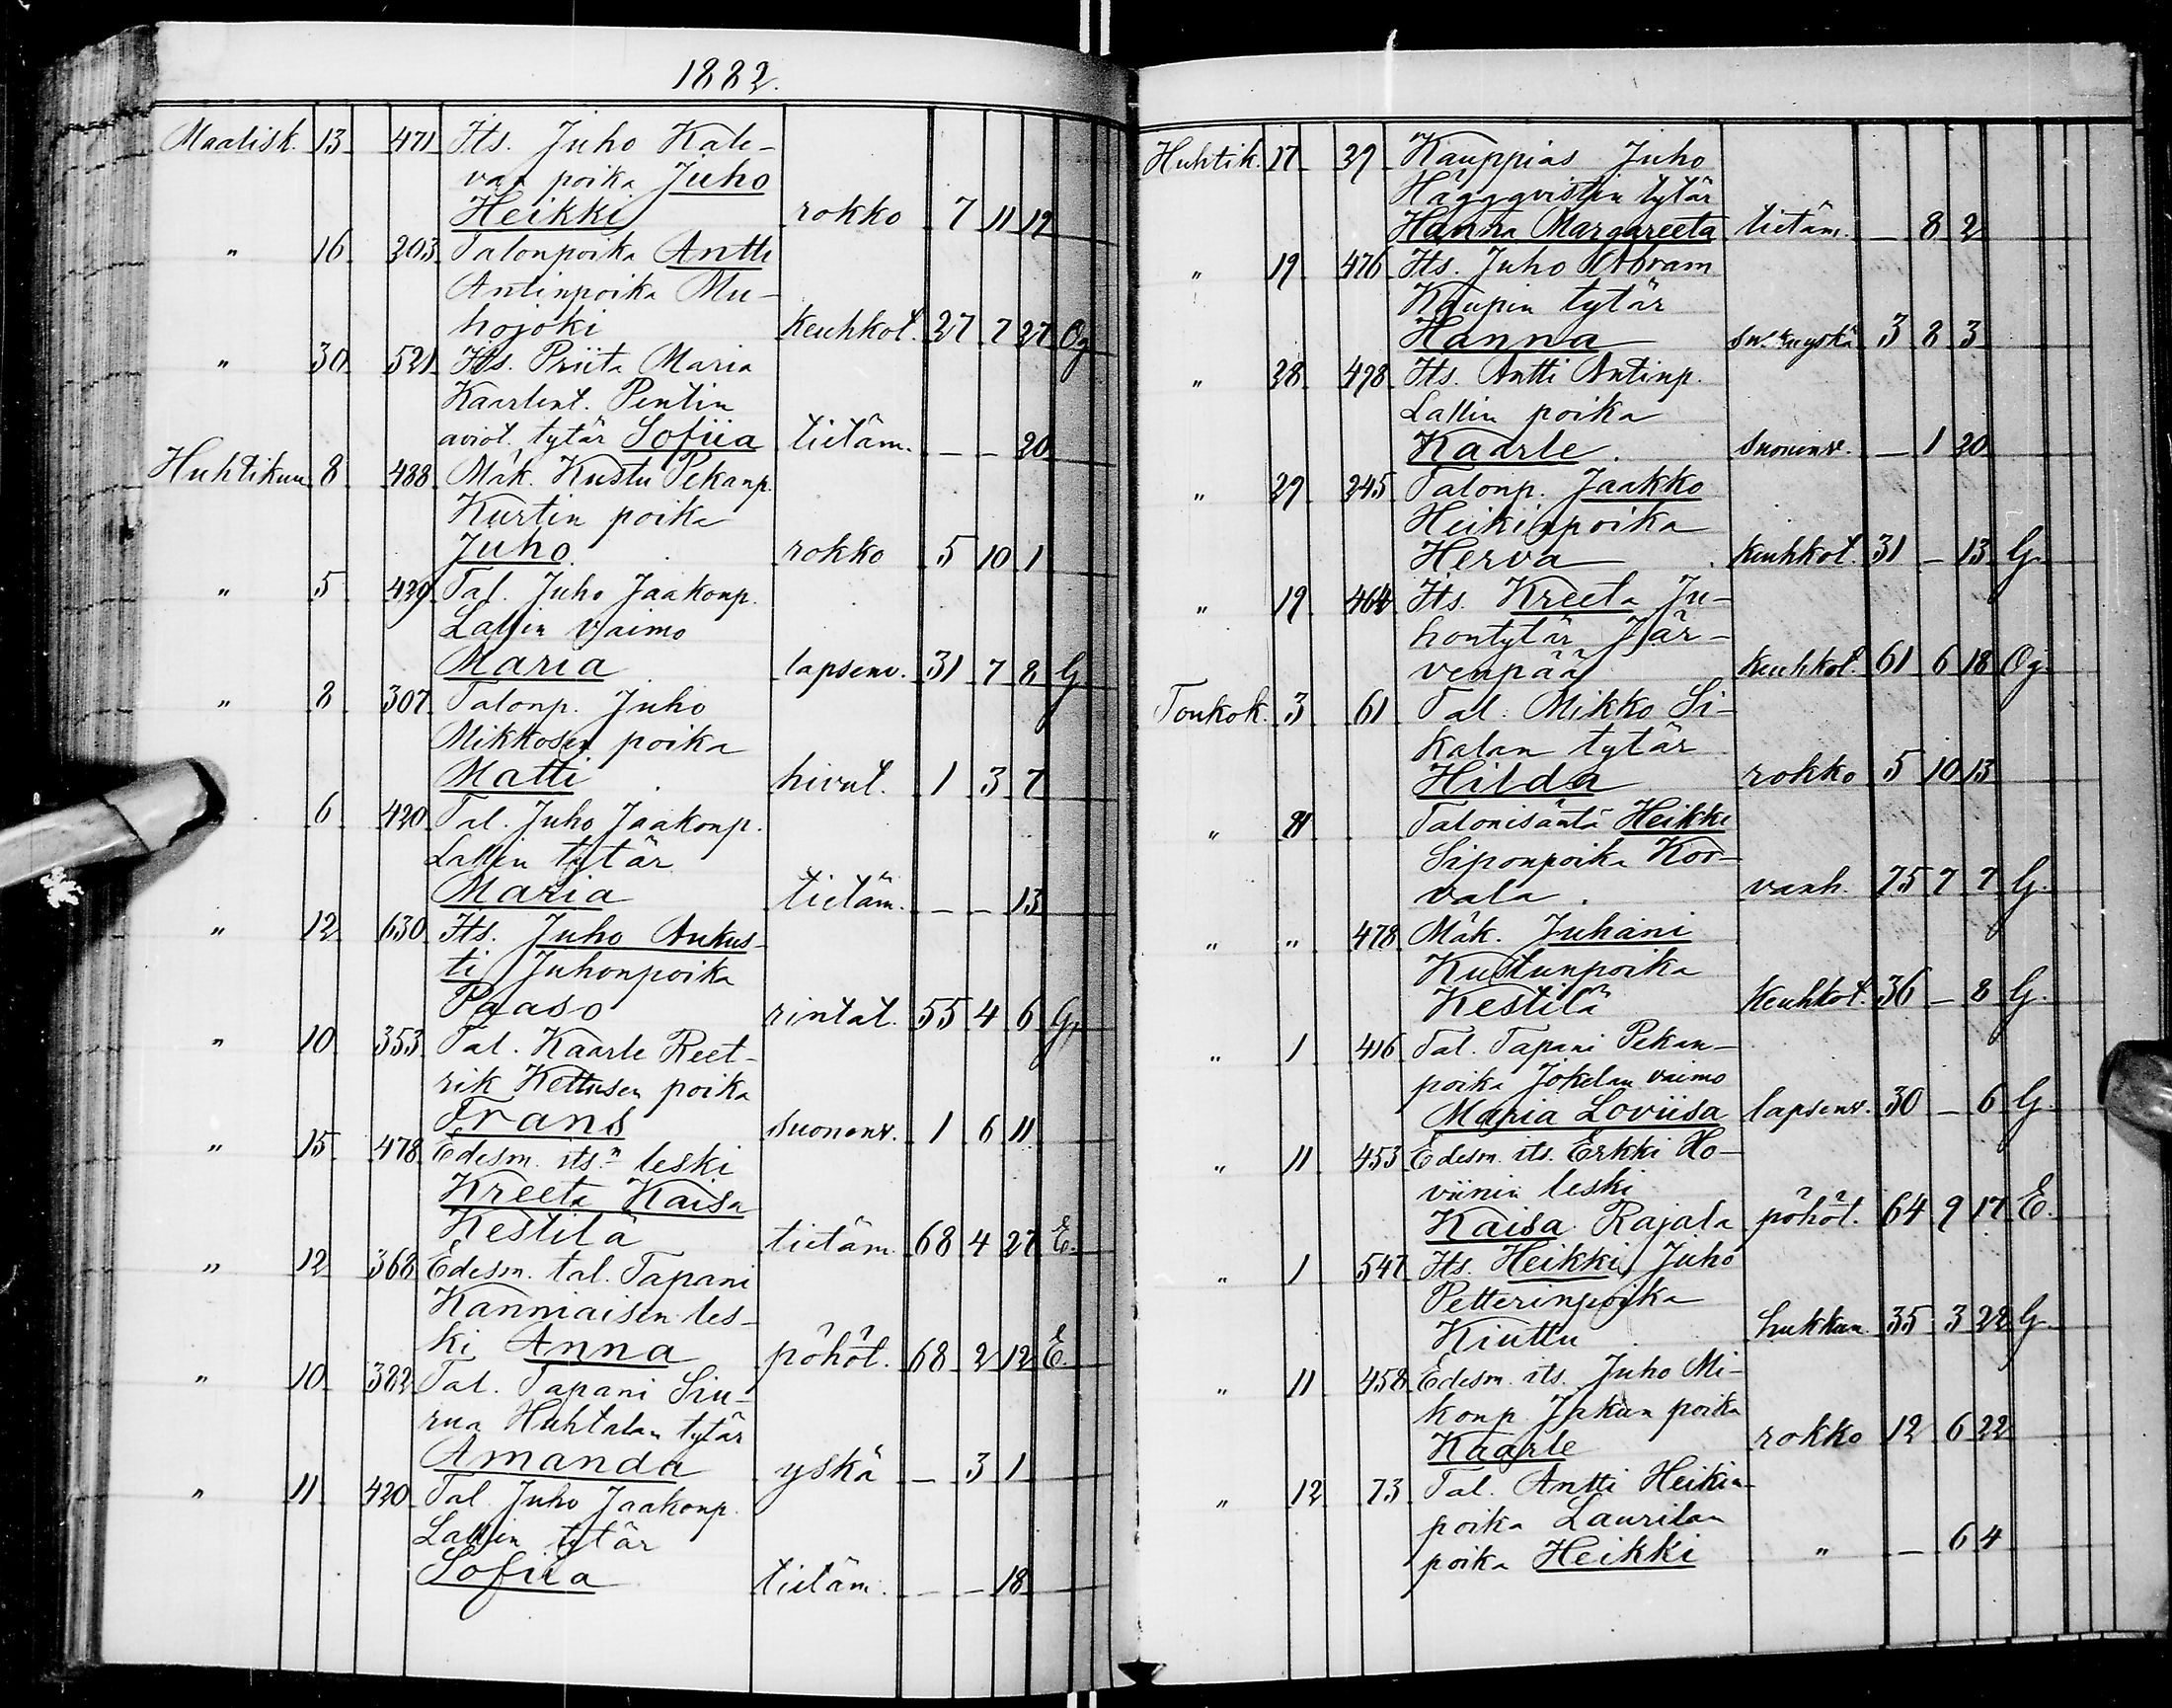 1882.
Maalisk. 13 471 Its. Juho Kale-
van poika Juho
Heikki rokko 7 11 19
" 16 203 Talonpoika Antti
Antinpoika Mu-
hojoki keuhkot. 27 7 27 Og
" 30 521 Its. Priita Maria
Kaarlent. Pentin
aviot. tytär Sofiia tietäm. — — 20
Huhtikuu 8 488 Mäk. Kustu Pekanp.
Kurtin poika
Juho rokko 5 10 1
" 5 439 Tal. Juho Jaakonp.
Lallin vaimo
Maria lapsenv. 31 7 8 G
" 8 307 Talonp. Juho
Mikkosen poika
Matti hivut. 1 3 7
6 420 Tal. Juho Jaakonp.
Lallin tytär
Maria tietäm. — — 13
" 12 630 Its. Juho Aukus-
ti Juhonpoika
Paaso rintat. 55 4 6 G
" 10 353 Tal. Kaarle Reet-
rik Kettusen poika
Frans suonenv. 1 6 11
" 15 478 Edesm. its:n leski
Kreeta Kaisa
Kestilä tietäm. 68 4 27 E.
" 12 368 Edesm. tal. Tapani
Kanniaisen les-
ki Anna pöhöt. 68 2 12 E.
" 10 382 Tal. Tapani Siu-
rua Huhtalan tytär
Amanda yskä — 3 1
" 11 420 Tal. Juho Jaakonp.
Lallin tytär
Sofiia tietäm. — — 18
Huhtik. 17 39 Kauppias Juho
Häggqvistin tytär
Hanna Margareeta tietäm. — 8 2
" 19 476 Its. Juho Abram
Kaupin tytär
Hanna 3 8 3
" 28 498 Its. Antti Antinp.
Lallin poika
Kaarle. suonenv. — 1 20
" 29 245 Talonp. Jaakko
Heikinpoika
Herva keuhkot. 31 — 13 G.
" 19 464 Its. Kreeta Ju-
hontytär Jär-
venpää keuhkot. 61 6 18 Og.
Toukok. 3 61 Tal. Mikko Si-
kalan tytär
Hilda rokko 5 10 13
" Talonisäntä Heikki
Siponpoika Kor-
vala. vanh. 75 7 7 G.
" " 478 Mäk. Juhani
Kustunpoika
Kestilä keuhkot. 36 — 8 G.
" 1 416 Tal. Tapani Pekan-
poika Jokelan vaimo
Maria Loviisa lapsenv. 30 — 6 G.
" 11 453 Edesm. its. Erkki Ho-
viinin leski
Kaisa Rajala pöhöt. 64 9 17 E.
" 1 547 Its. Heikki Juho
Petterinpoika
Kiuttu hukkun. 35 3 22 G
" 11 458 Edesm. its. Juho Mi-
konp. Jakun poika
Kaarle rokko 12 6 22
" 12 73 Tal. Antti Heikin-
poika Laurilan
poika Heikki " — 6 4